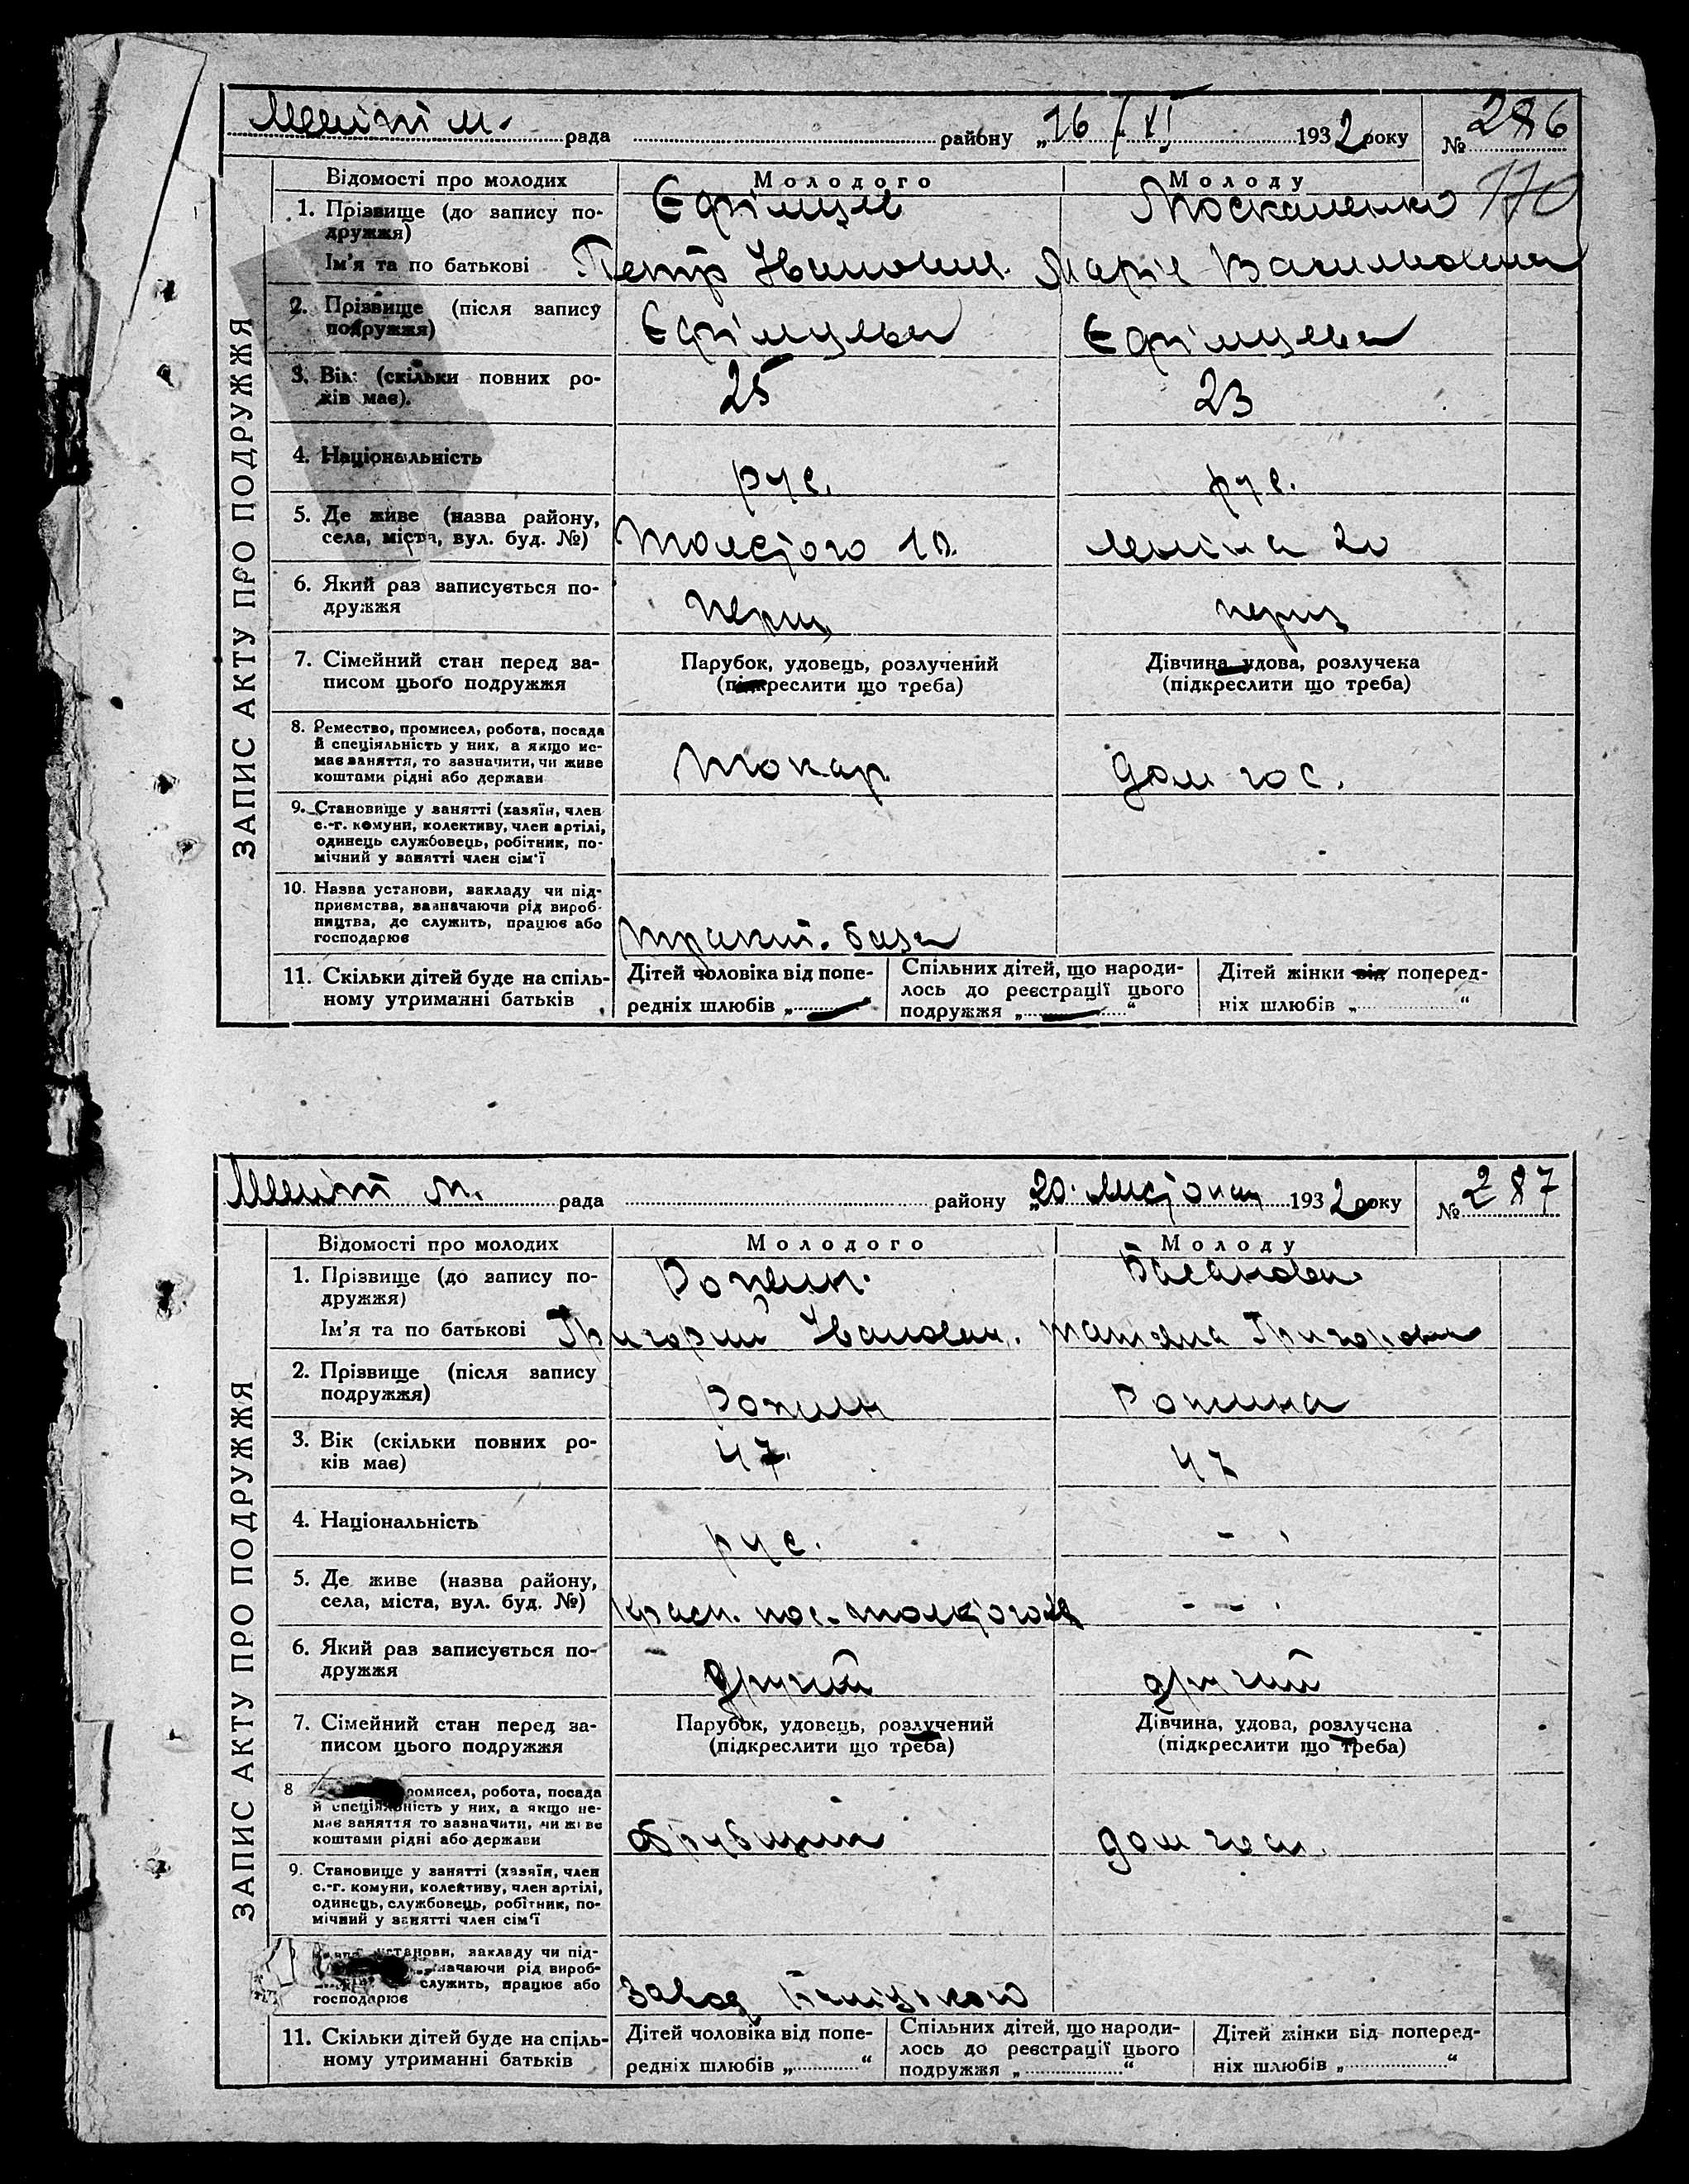 рада району „16 / XI 1932 року № 286
170
ЗАПИС АКТУ ПРО ПОДРУЖЖЯ
Відомості про молодих Молодого Молоду
1. Прізвище (до запису по-
дружжя)
Москаленко
Ім'я та по батькові Петр Іванович Марія Васильевна
2. Прізвище (після запису
подружжя)
3. Вік (скільки повних ро-
ків має). 25 23
4. Національність рус. рус.
5. Де живе (назва району,
села, міста, вул. буд. №) Толстого 10. Леніна 20
6. Який раз записується по-
дружжя перш перш
7. Сімейний стан перед за-
писом цього подружжя
Парубок, удовець, розлучений
(підкреслити що треба)
Дівчина удова, розлучена
(підкреслити що треба)
8. Ремество, промисел, робота, посада
й спеціяльність у них, а якщо не-
має заняття, то зазначити, чи живе
коштами рідні або держави
Токар дом гос.
9. Становище у занятті (хазяїн, член
с.-г. комуни, колективу, член артілі,
одинець службовець, робітник, по-
мічний у занятті член сім'ї
10. Назва установи, закладу чи під-
приємства, зазначаючи рід вироб-
ництва, де служить, працює або
господарює
база
11. Скільки дітей буде на спіль-
ному утриманні батьків
Дітей чоловіка від попе-
редніх шлюбів „ “
Спільних дітей, що народи-
лось до реєстрації цього
подружжя „ “
Дітей жінки від поперед-
ніх шлюбів „ “
рада району „20 листопад 1932 року № 287
ЗАПИС АКТУ ПРО ПОДРУЖЖЯ
Відомості про молодих Молодого Молоду
1. Прізвище (до запису по-
дружжя)
Ім'я та по батькові Григорий Іванович. Татяна Григоровна
2. Прізвище (після запису
подружжя)
3. Вік (скільки повних ро-
ків має) 47. 47
4. Національність рус. -
5. Де живе (назва району,
села, міста, вул. буд. №) Красн. пос. Толстого - -
6. Який раз записується по-
дружжя другий другий
7. Сімейний стан перед за-
писом цього подружжя
Парубок, удовець, розлучений
(підкреслити що треба)
Дівчина, удова, розлучена
(підкреслити що треба)
8 промисел, робота, посада
й спеціяльність у них, а якщо не-
має заняття то зазначити, чи живе
коштами рідні або держави
обрубщик дом гос.
9. Становище у занятті (хазяїн, член
с.-г. комуни, колективу, член артілі,
одинець, службовець, робітник, по-
мічний у занятті член сім'ї
установи, закладу чи під-
значаючи рід вироб-
служить, працює або
господарює
Завод
11. Скільки дітей буде на спіль-
ному утриманні батьків
Дітей чоловіка від попе-
редніх шлюбів „ “
Спільних дітей, що народи-
лось до реєстрації цього
подружжя „ “
Дітей жінки від поперед-
ніх шлюбів „ “